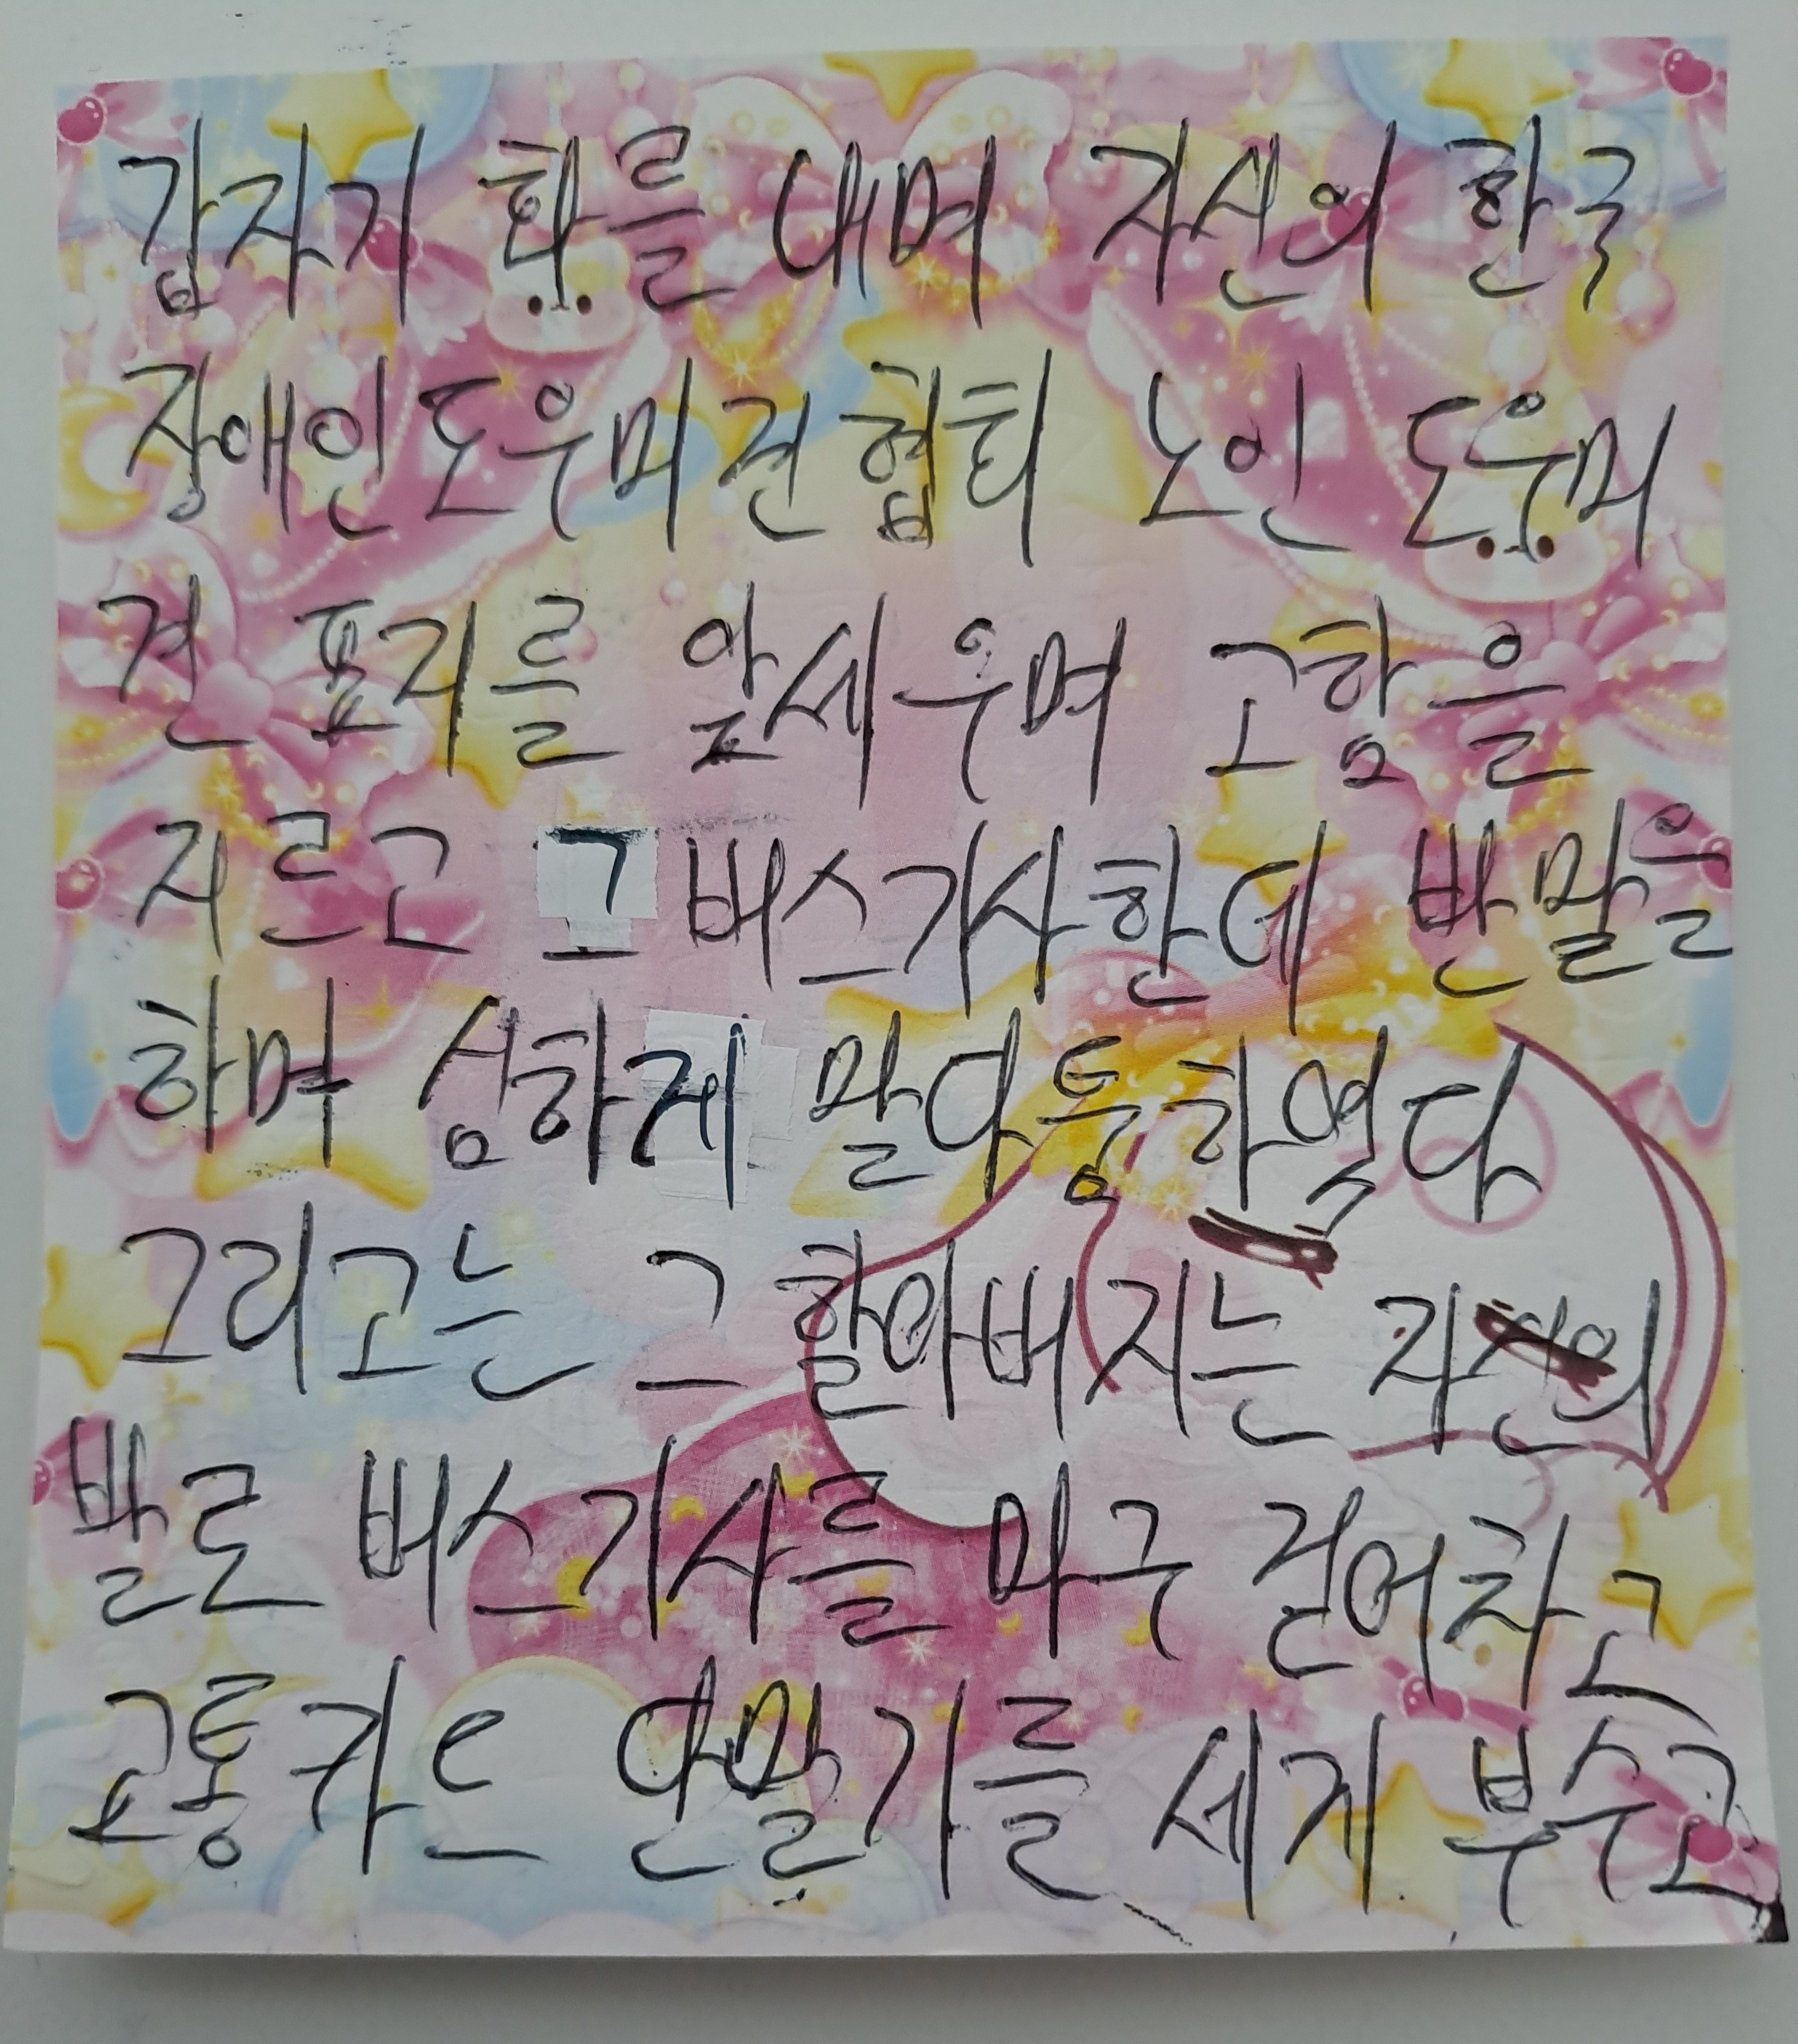 갑자기 화를 내며 자신의 한국
장애인도우미견협회 노인 도우미
견 표지를 앞세우며 고함을
지르고 그 버스기사한데 반말을
하며 심하게 말다퉁하였다
그리고는 그 할아버지는 자신의
발로 버스기사를 마구 걷어차고
교통카드 단말기를 세게 부수고